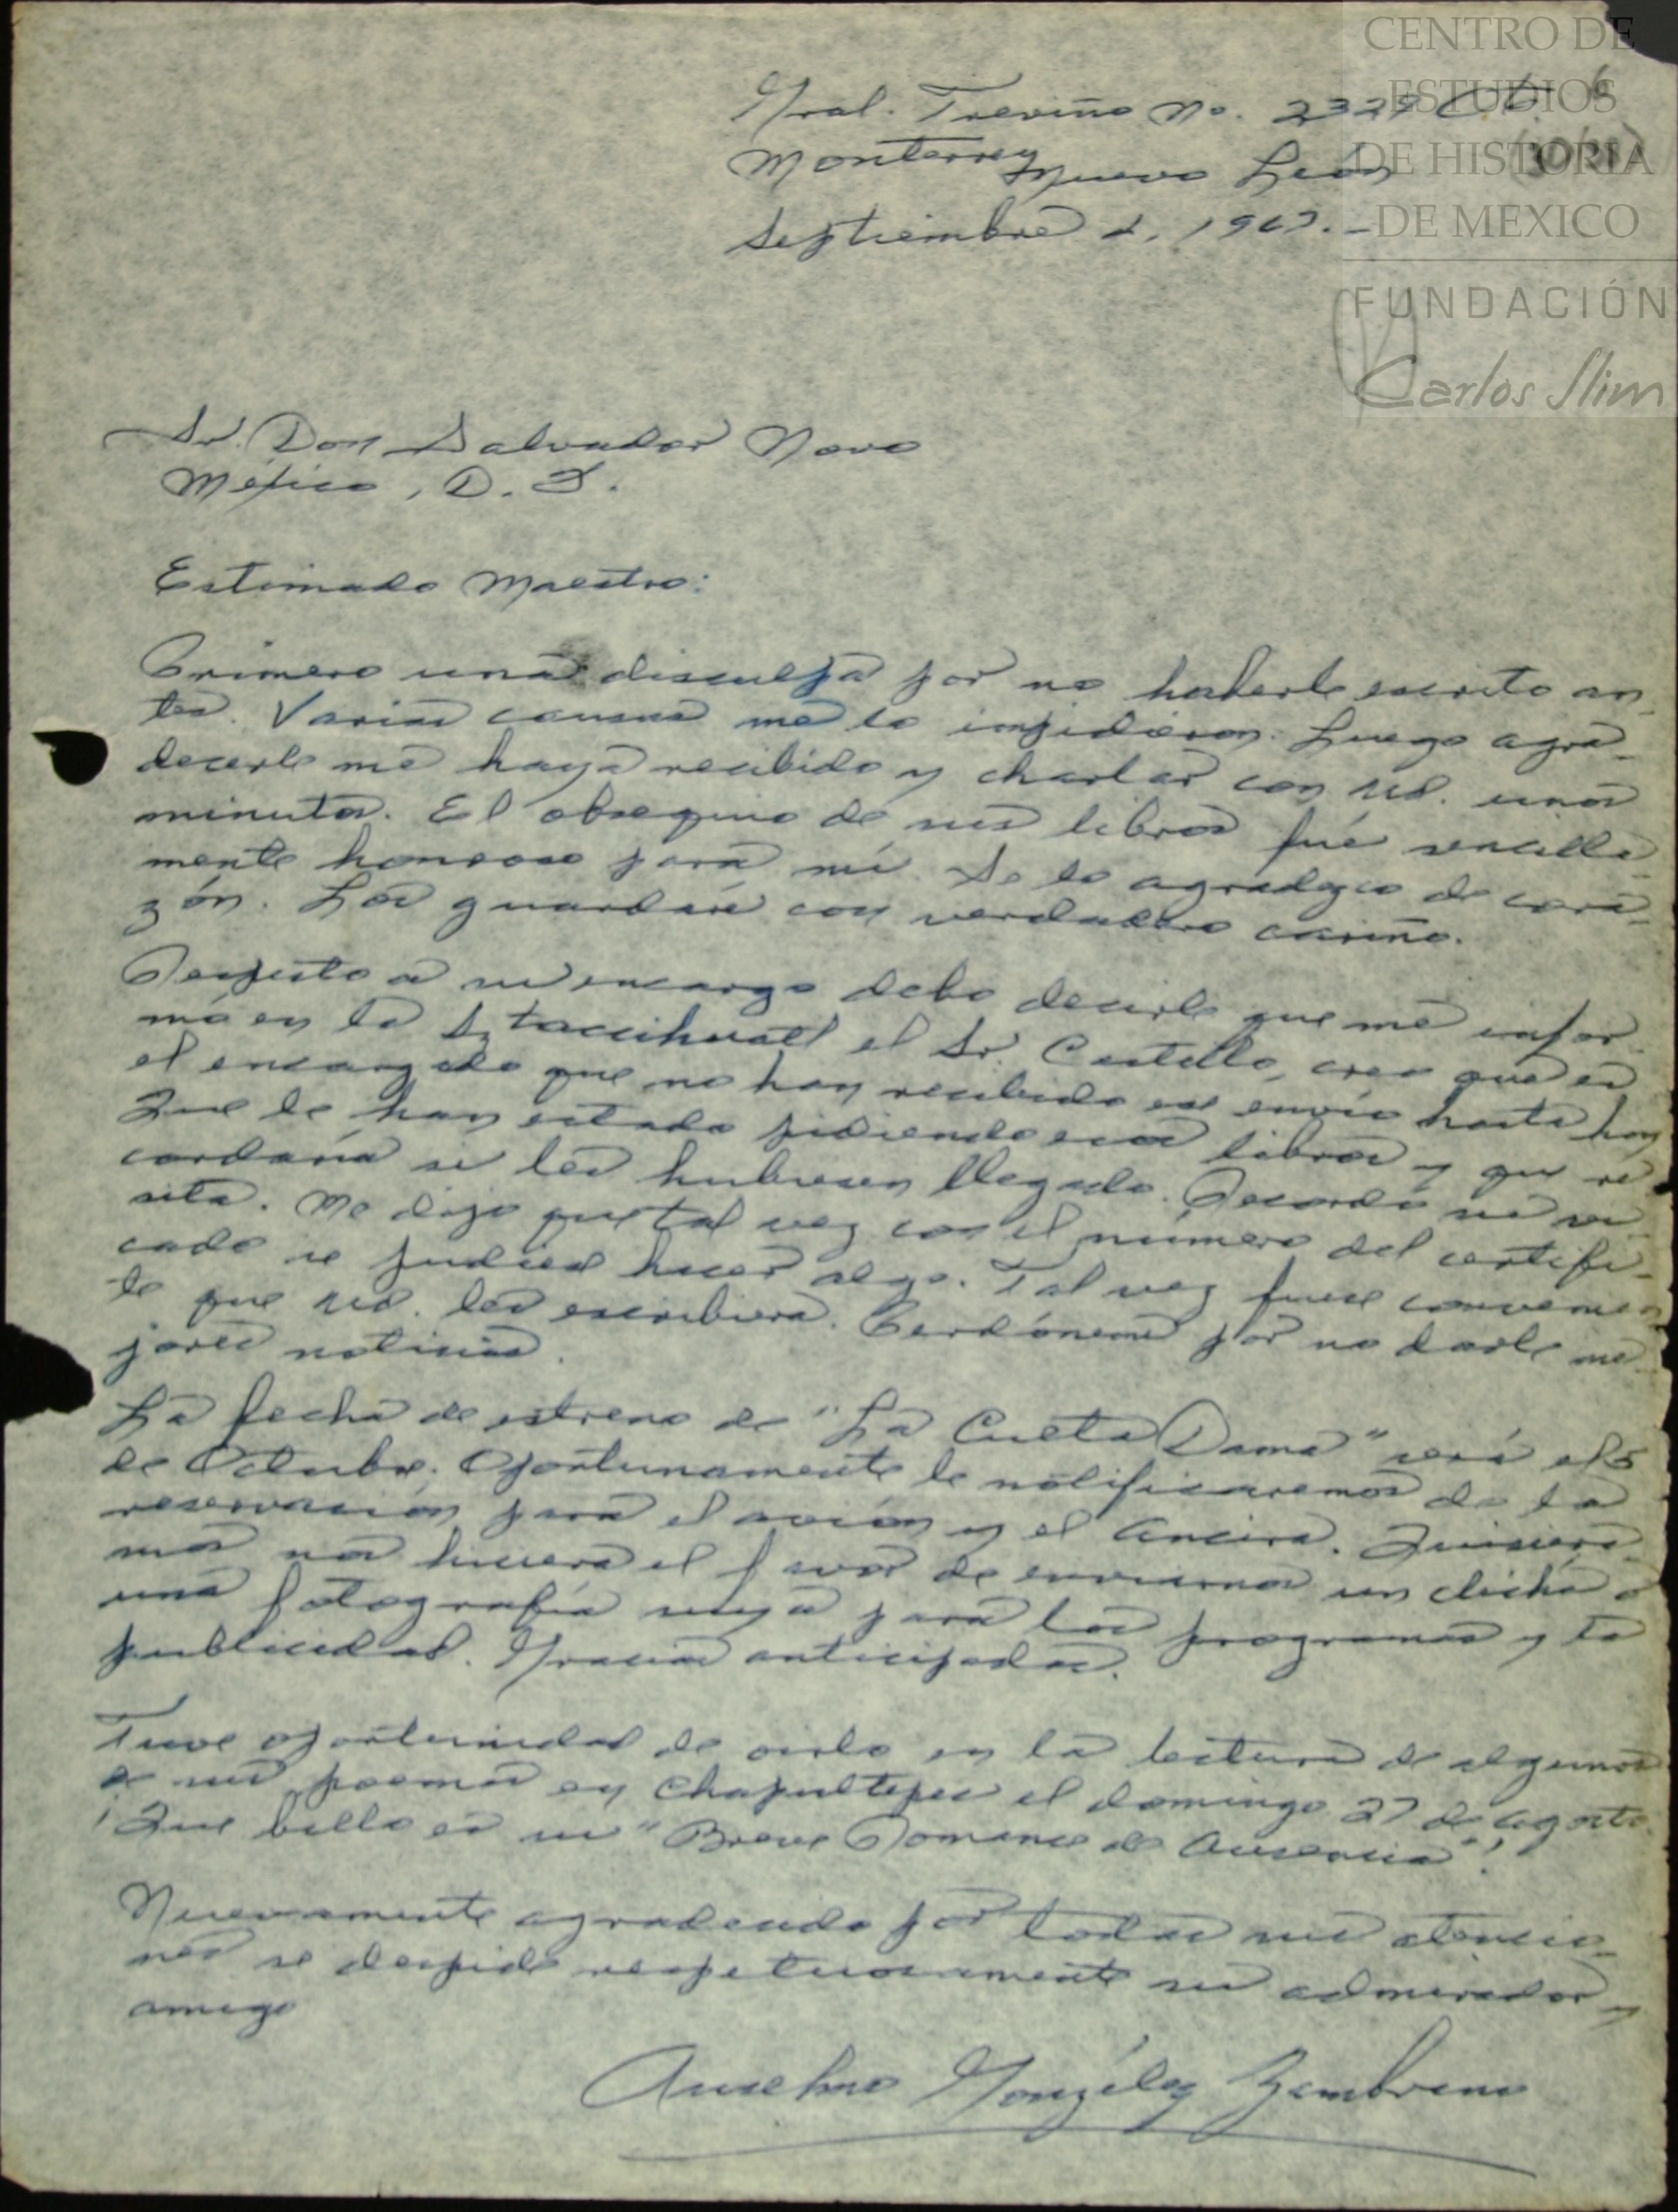 CENTRO DE
ESTUDIOS
DE HISTORIA
DE MEXICO
FUNDACIÓN
Carlos Slim
Gral. Treviño No. 2329
Monterrey Nuevo León
Septiembre 2, 1967.-
Sr. Don Salvador Novo
México, D. F.
Estimado Maestro:
Primero una disculpa por no haberle escrito an-
tes. Varias causas me lo impidieron. Luego agra-
decerle me haya recibido y charlar con Ud. unos
minutos. El obsequio de sus libros fué sencilla-
mente honroso para mí. Se lo agradezco de cora-
zón. Los guardaré con verdadero cariño.
Respecto a su encargo debo decirle que me infor-
mó en la Iztaccihuatl el Sr. Castillo, creo que es
el encargado que no han recibido ese envío hasta hoy
Que le han estado pidiendo esos libros y que re-
cordaría si les hubiesen llegado. Recordó su vi-
sita. Me dijo que tal vez con el número del certifi-
cado se pudiese hacer algo. Tal vez fuese convenien-
te que Ud. les escribiera. Perdóneme por no darle me-
jores noticias.
La fecha de estreno de "La Culta Dama" será el 5
de Octubre. Oportunamente le notificaremos de la
reservación para el avión y el Ancira. Quisiéra-
mos nos hiciera el favor de enviarnos un cliché o
una fotografía suya para los programas y la
publicidad. Gracias anticipadas.
Tuve oportunidad de oirlo en la lectura de algunos
de sus poemas en Chapultepec el domingo 27 de agosto.
¡Que bello es su "Breve Romance de Ausencia"!
Nuevamente agradecido por todas sus atencio-
nes se despide respetuosamente su admirador y
amigo
Anselmo González Zambrano